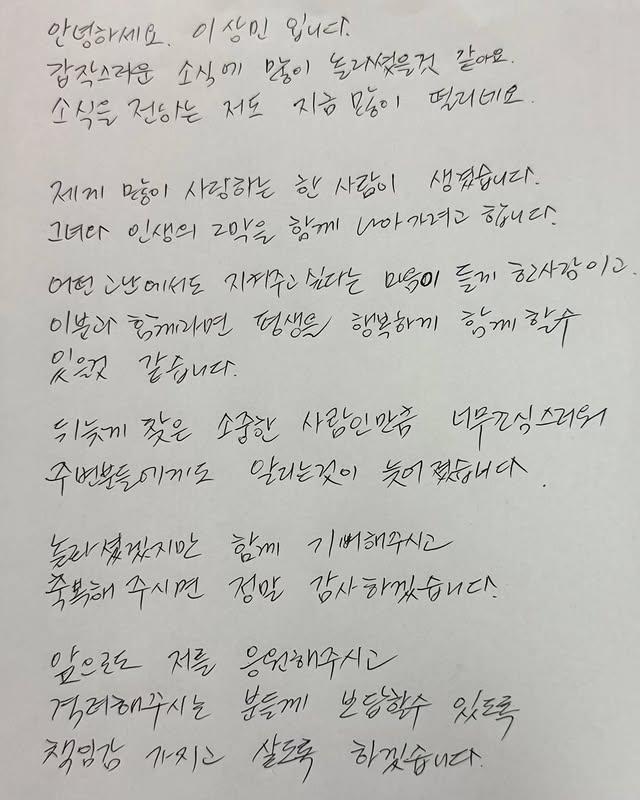 안녕하세요. 이상민 입니다.
갑작스러운 소식에 많이 놀라셨을것 같아요.
소식을 전하는 저도 지금 많이 떨리네요.
제게 많이 사랑하는 한 사람이 생겼습니다.
그녀와 인생의 2막을 함께 나아가려고 합니다.
어떤 고난에서도 지켜주고 싶다는 마음이 들게 한사람이고.
이분과 함께라면 평생을 행복하게 함께 할수
있을것 같습니다.
뒤늦게 찾은 소중한 사람인만큼 너무조심스러워
주변분들에게도 알리는것이 늦어졌습니다.
놀라셨겠지만 함께 기뻐해주시고
축복해 주시면 정말 감사하겠습니다.
앞으로도 저를 응원해주시고
격려해주시는 분들께 보답할수 있도록
책임감 가지고 살도록 하겠습니다.